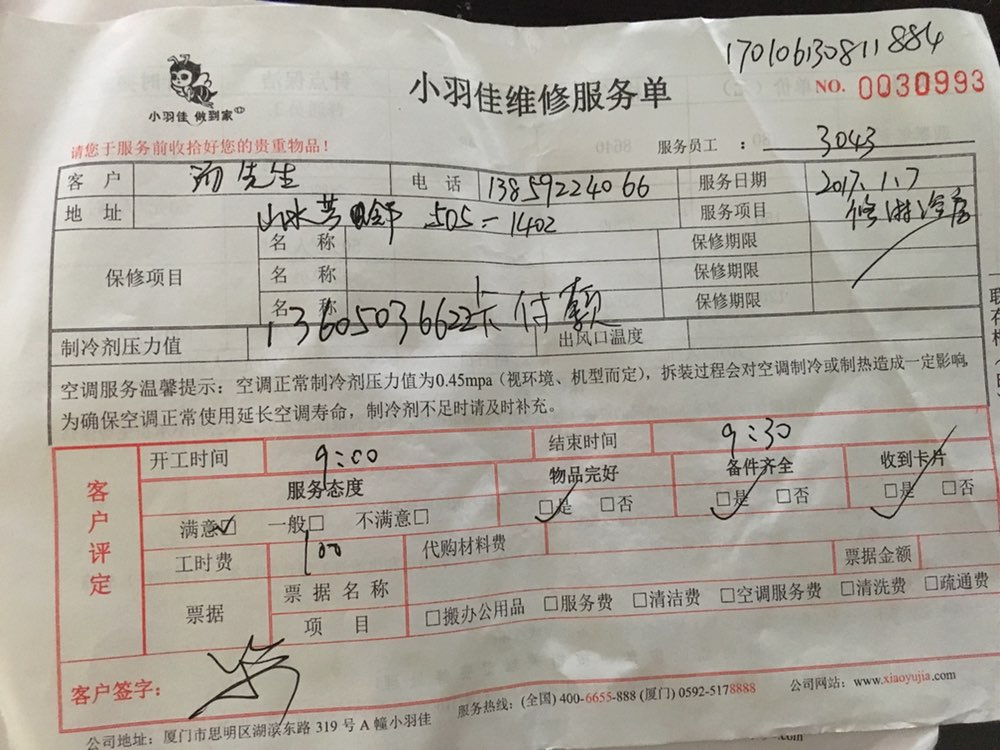 17010613081 1884
小羽佳 做到家
小羽佳维修服务单
NO. 0030993
请您于服务前收拾好您的贵重物品！
服务员工 ： 3043
客 户 汤先生 电 话 13859224066 服务日期 2017.1.7
地 址 山水芳 505=1402 服务项目 修淋浴房
保修项目 名 称 保修期限
名 称 保修期限
名 称 保修期限
13605036622卡付款
制冷剂压力值 出风口温度
空调服务温馨提示：空调正常制冷剂压力值为0.45mpa（视环境、机型而定），拆装过程会对空调制冷或制热造成一定影响
为确保空调正常使用延长空调寿命，制冷剂不足时请及时补充。
客户评定
开工时间 9:00 结束时间 9:30
服务态度 物品完好 备件齐全 收到卡片
满意☑ 一般□ 不满意□ ☑是 □否 ☑是 □否 ☑是 □否
工时费 100 代购材料费
票据 票据名称 票据金额
项 目 □搬办公用品 □服务费 □清洁费 □空调服务费 □清洗费 □疏通费
客户签字：
服务热线：(全国) 400-6655-888 (厦门) 0592-5178888 公司网站：www.xiaoyujia.com
公司地址：厦门市思明区湖滨东路 319 号 A 幢小羽佳